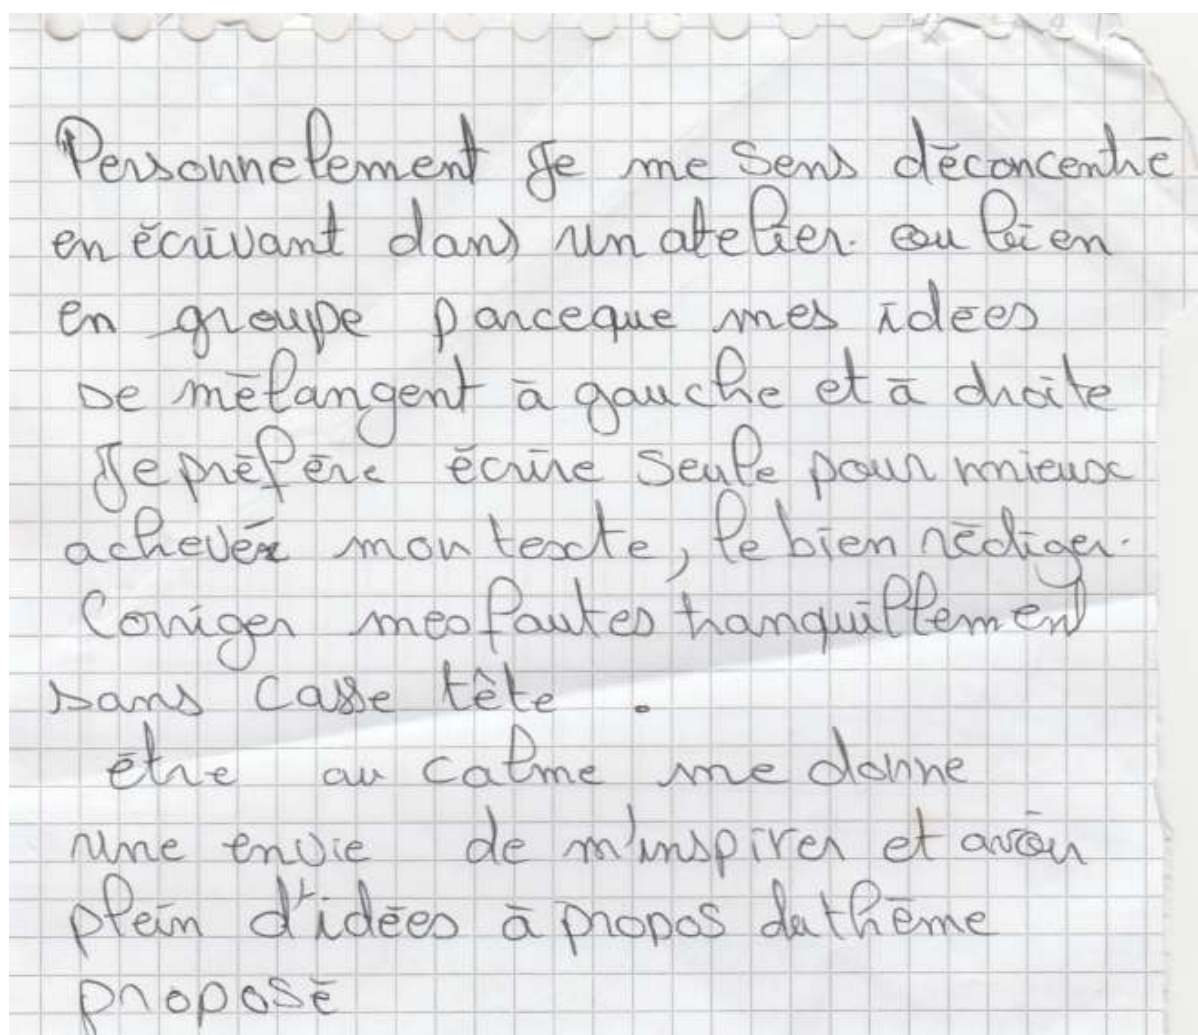 Personnelement Je me sens déconcentré
en écrivant dans un atelier. ou bien
en groupe parceque mes idées
se mélangent à gauche et à droite
Je préfère écrire seule pour mieux
achevér mon texte, le bien rédiger.
Corriger mes fautes tranquillement
sans casse tête .
être au calme me donne
une envie de m'inspirer et avoir
plein d'idées à propos du thème
proposé